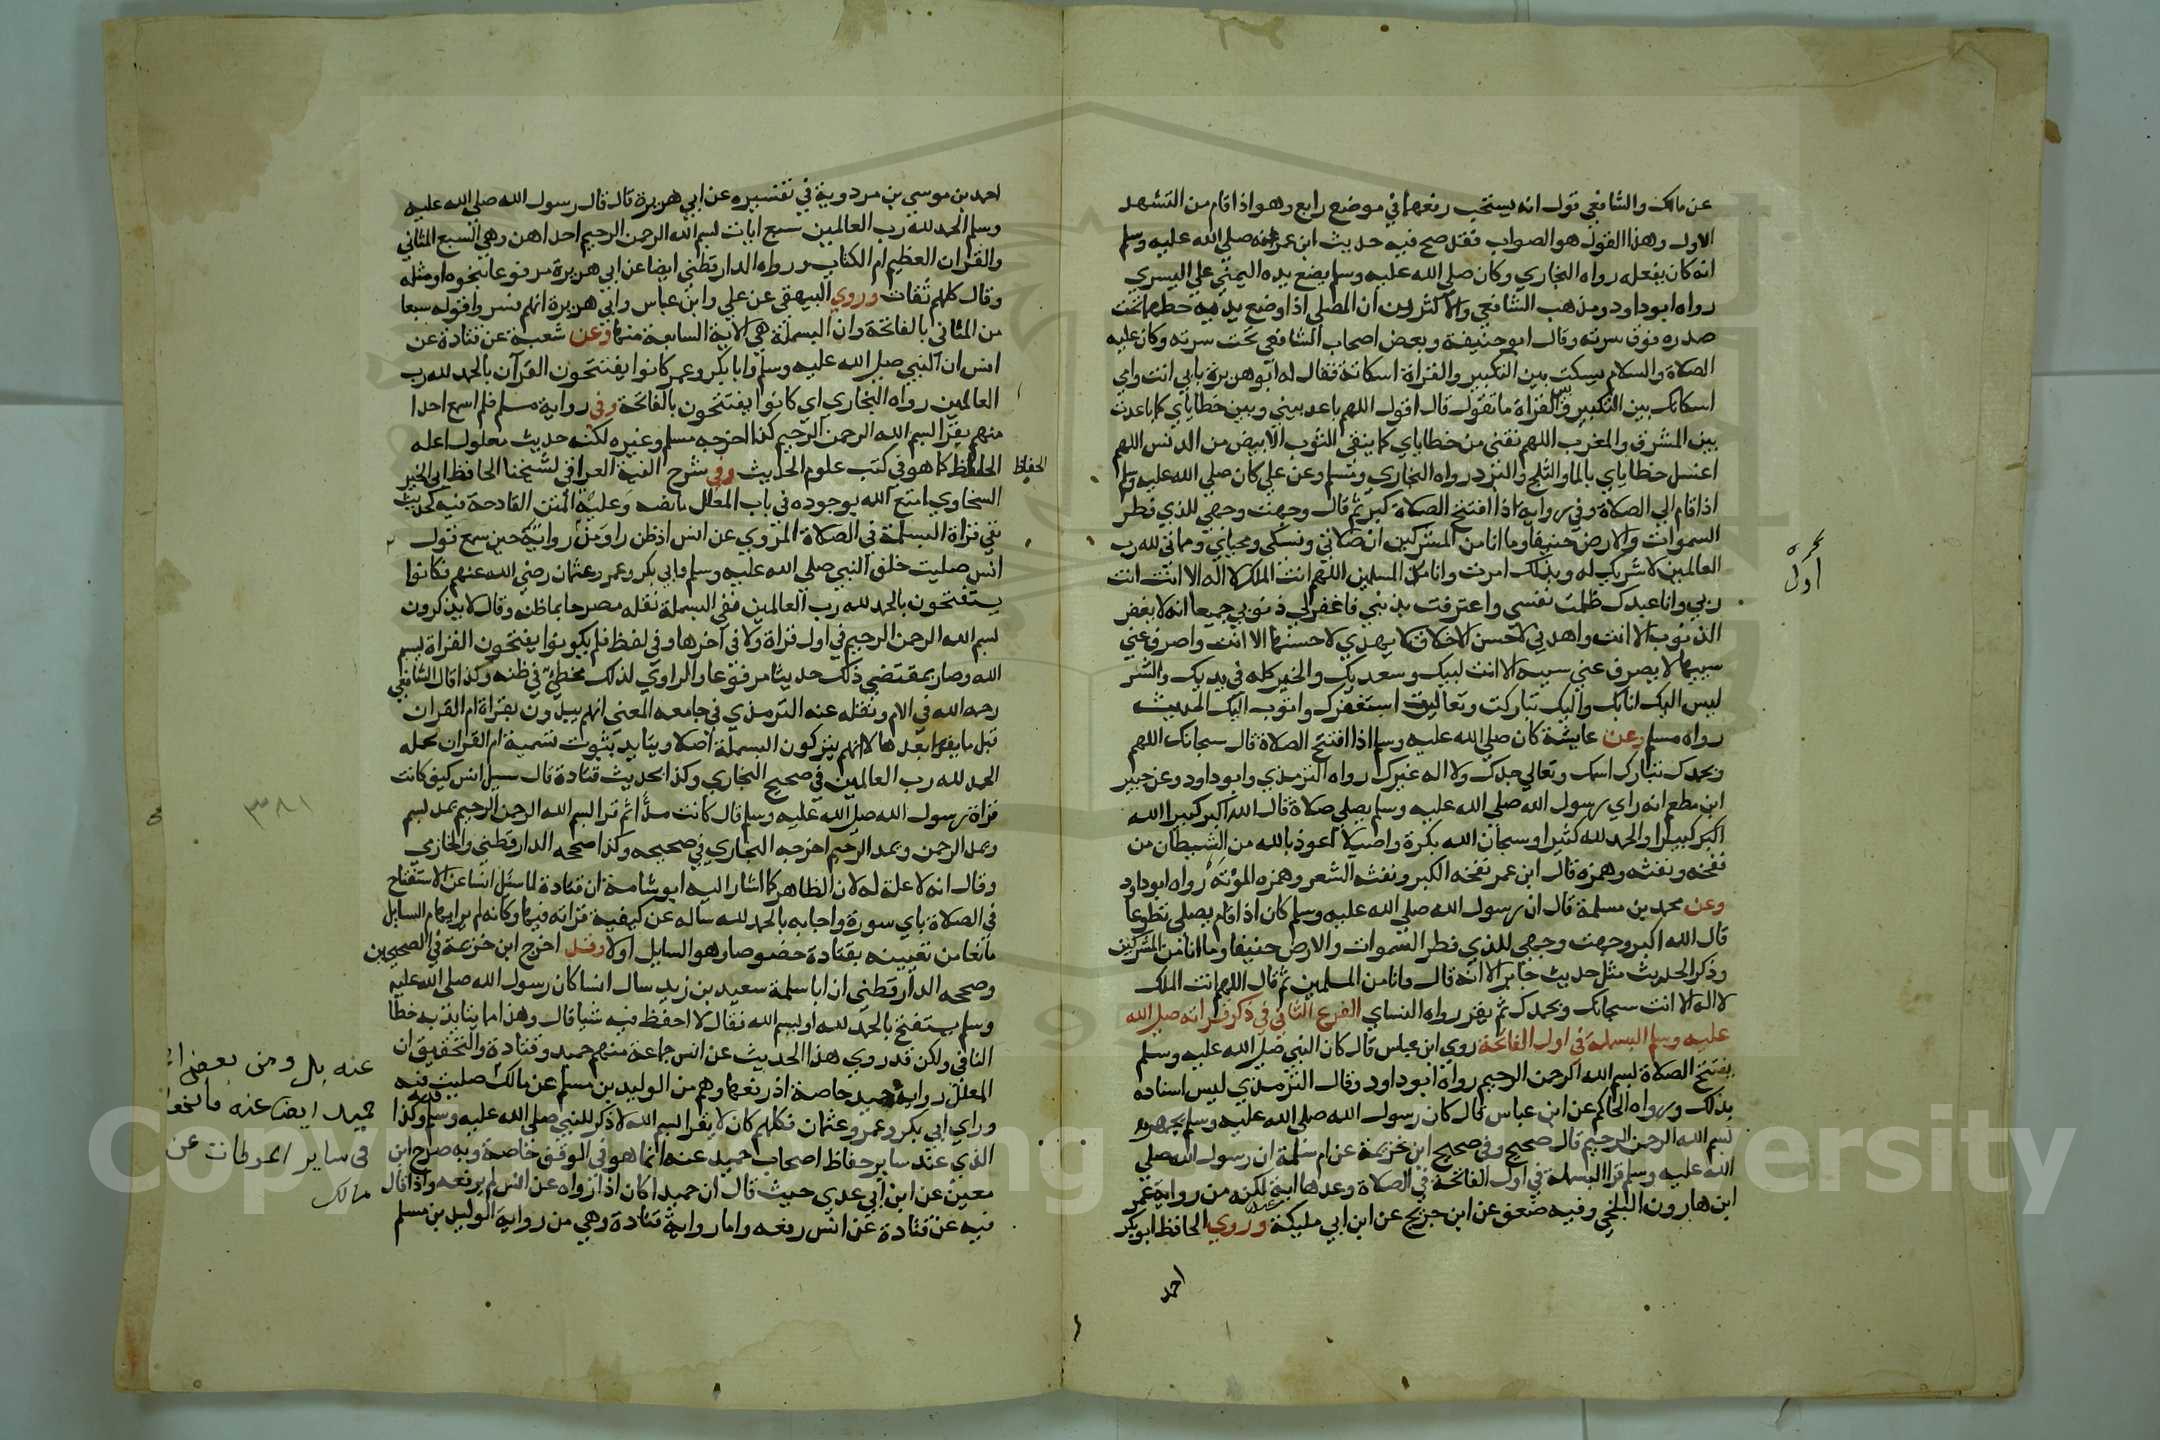 عن مالك والشافعي قول انه يستحب رفعهما في موضع رابع وهو اذا قام من التشهد
الاول وهذا القول هو الصواب فقد صح فيه حديث ابن عمر عنه صلي الله عليه وسلم
انه كان يفعله رواه البخاري وكان صلي الله عليه وسلم يضع يده اليمني علي اليسري
رواه ابوداود ومذهب الشافعي والاكثرين ان المصلي اذا وضع يديه حطهما تحت
صدره فوق سرته وقال ابو حنيفة وبعض اصحاب الشافعي تحت سرته وكان عليه
الصلاة والسلام يسكت بين التكبير والقراة اسكاتة فقال له ابو هريرة بابي انت وامي
اسكاتك بين التكبير والقراة ما تقول قال اقول اللهم باعد بيني وبين خطاياي كما باعدت
بين المشرق والمغرب اللهم نقني من خطاياي كما ينقي الثوب الابيض من الدنس اللهم
اغسل خطاياي بالما والثلج والبرد رواه البخاري ومسلم وعن علي كان صلي الله عليه وسلم
اذا قام الي الصلاة وفي رواية اذا افتتح الصلاة كبر ثم قال وجهت وجهي للذي فطر
السموات والارض حنيفا وما انا من المشركين ان صلاتي ونسكي ومحياي ومماتي لله رب
العالمين لا شريك له وبذلك امرت وانا من المسلمين اللهم انت الملك لا اله الا انت انت
ربي وانا عبدك ظلمت نفسي واعترفت بذنبي فاغفر لي ذنوبي جميعا انه لا يغفر
الذنوب الا انت واهدني لاحسن الاخلاق لا يهدي لاحسنها الا انت واصرف عني
سييها لا يصرف عني سييها الا انت لبيك وسعديك والخير كله في يديك والشر
ليس اليك انا بك واليك تباركت وتعاليت استغفرك واتوب اليك الحديث
رواه مسلم وعن عايشة كان صلي الله عليه وسلم اذا افتتح الصلاة قال سبحانك اللهم
وبحمدك تبارك اسمك وتعالي جدك ولا اله غيرك رواه الترمذي وابو داود وعن جبير
ابن مطعم انه راي رسول الله صلي الله عليه وسلم يصلي صلاة قال الله اكبر كبيرا الله
اكبر كبيرا والحمد لله كثيرا وسبحان الله بكرة واصيلا اعوذ بالله من الشيطان من
نفخه ونفثه وهمزه قال ابن عمر نفخه الكبر ونفثه الشعر وهمزه الموتة رواه ابوداود
وعن محمد بن مسلمة قال ان رسول الله صلي الله عليه وسلم كان اذا قام يصلي تطوعا
قال الله اكبر وجهت وجهي للذي فطر السموات والارض حنيفا وما انا من المشركين
وذكر الحديث مثل حديث جابر الا انه قال وانا من المسلمين ثم قال اللهم انت الملك
لا اله الا انت سبحانك وبحمدك ثم يقرا رواه النساي الفرع الثاني في ذكر قراته صلي الله
عليه وسلم البسملة في اول الفاتحة روي ابن عباس قال كان النبي صلي الله عليه وسلم
يفتتح الصلاة ببسم الله الرحمن الرحيم رواه ابوداود وقال الترمذي ليس اسناده
بذلك ورواه الحاكم عن ابن عباس قال كان رسول الله صلي الله عليه وسلم يجهر
ببسم الله الرحمن الرحيم قال صحيح وفي صحيح ابن خزيمة عن ام سلمة ان رسول الله صلي
الله عليه وسلم قرا البسملة في اول الفاتحة في الصلاة وعدها اية لكنه من رواية عمر
ابن هارون البلخي وفيه ضعف عن ابن جريج عن ابن ابي مليكة وروي الحافظ ابو بكر
احمد
اول
احمد بن موسي بن مردوية في تفسيره عن ابي هريرة قال قال رسول الله صلي الله عليه
وسلم الحمد لله رب العالمين سبع ايات بسم الله الرحمن الرحيم احداهن وهي السبع المثاني
والقران العظيم ام الكتاب ورواه الدارقطني ايضا عن ابي هريرة مرفوعا بنحوه او مثله
وقال كلهم ثقات وروي البيهقي عن علي وابن عباس وابي هريرة انهم فسروا قوله سبعا
من المثاني بالفاتحة وان البسملة هي الاية السابعة منها وعن شعبة عن قتادة عن
انس ان النبي صلي الله عليه وسلم وابا بكر وعمر كانوا يفتتحون القرآن بالحمد لله رب
العالمين رواه البخاري اي كانوا يفتتحون بالفاتحة وفي رواية مسلم فلم اسمع احدا
منهم يقرا بسم الله الرحمن الرحيم كذا اخرجه مسلم وغيره لكنه حديث معلول اعله
الحفاظ كما هو في كتب علوم الحديث وفي شرح الفية العراقي لشيخنا الحافظ ابي الخير
الحفاظ
السخاوي امتع الله بوجوده في باب المعلل ما نصه وعلة المتن القادحة فيه كحديث
نفي قراة البسملة في الصلاة المروي عن انس اذ ظن راو من رواية حين سمع قول
انس صليت خلف النبي صلي الله عليه وسلم وابي بكر وعمر وعثمان رضي الله عنهم فكانوا
يستفتحون بالحمد لله رب العالمين نفي البسملة فنقله مصرحا بما ظنه وقال لا يذكرون
بسم الله الرحمن الرحيم في اول قراة ولا في آخرها وفي لفظ فلم يكونوا يفتتحون القراة ببسم
الله وصار بمقتضي ذلك حديثا مرفوعا والراوي لذلك مخطئ في ظنه وكذا قال الشافعي
رحمه الله في الام ونقله عنه الترمذي في جامعه المعني انهم يبدون بقراة ام القران
قبل ما يقرا بعدها لا انهم يتركون البسملة اصلا ويتايد بثبوت تسمية ام القران بجملة
الحمد لله رب العالمين في صحيح البخاري وكذا بحديث قتادة قال سيل انس كيف كانت
قراة رسول الله صلي الله عليه وسلم قال كانت مدا ثم قرا بسم الله الرحمن الرحيم يمد بسم
ويمد الرحمن ويمد الرحيم اخرجه البخاري في صحيحه وكذا صححه الدارقطني والحازمي
وقال انه لا علة له لان الظاهر كما اشار اليه ابو شامة ان قتادة لما سئل انسا عن الاستفتاح
في الصلاة باي سورة واجابه بالحمد لله ساله عن كيفية قراته فيها وكانه لم ير ابهام السايل
مانعا من تعيينه بقتادة خصوصا وهو السايل اولا وقد اخرج ابن خزيمة في الصحيح بن
وصححه الدارقطني ان ابا سلمة سعيد بن زيد سال انسا كان رسول الله صلي الله عليه
وسلم يستفتح بالحمد لله او ببسم الله فقال لا احفظ فيه شيا قال وهذا مما يتايد به خطا
النافي ولكن قد روي هذا الحديث عن انس جماعة منهم حميد وقتادة والتحقيق ان
المعلل رواية حميد خاصة اذ رفعها وهم من الوليد بن مسلم عن مالك صليت
وراي ابي بكر وعمر وعثمان فكلهم كان لا يقرا بسم الله لا ذكر للنبي صلي الله عليه وسلم وكذا
الذي عند ساير حفاظ اصحاب حميد عنه انما هو في الوقف خاصة وبه صرح ابن
معين عن ابن ابي عدي حيث قال ان حميدا كان اذا رواه عن انس لم يرفعه واذا قال
فيه عن قتادة عن انس رفعه واما رواية قتادة وهي من رواية الوليد بن مسلم
٣٨١
عنه بل ومن بعض
حميد ايضا عنه
في ساير الموطات عن
مالك
Copyright © King Saud University